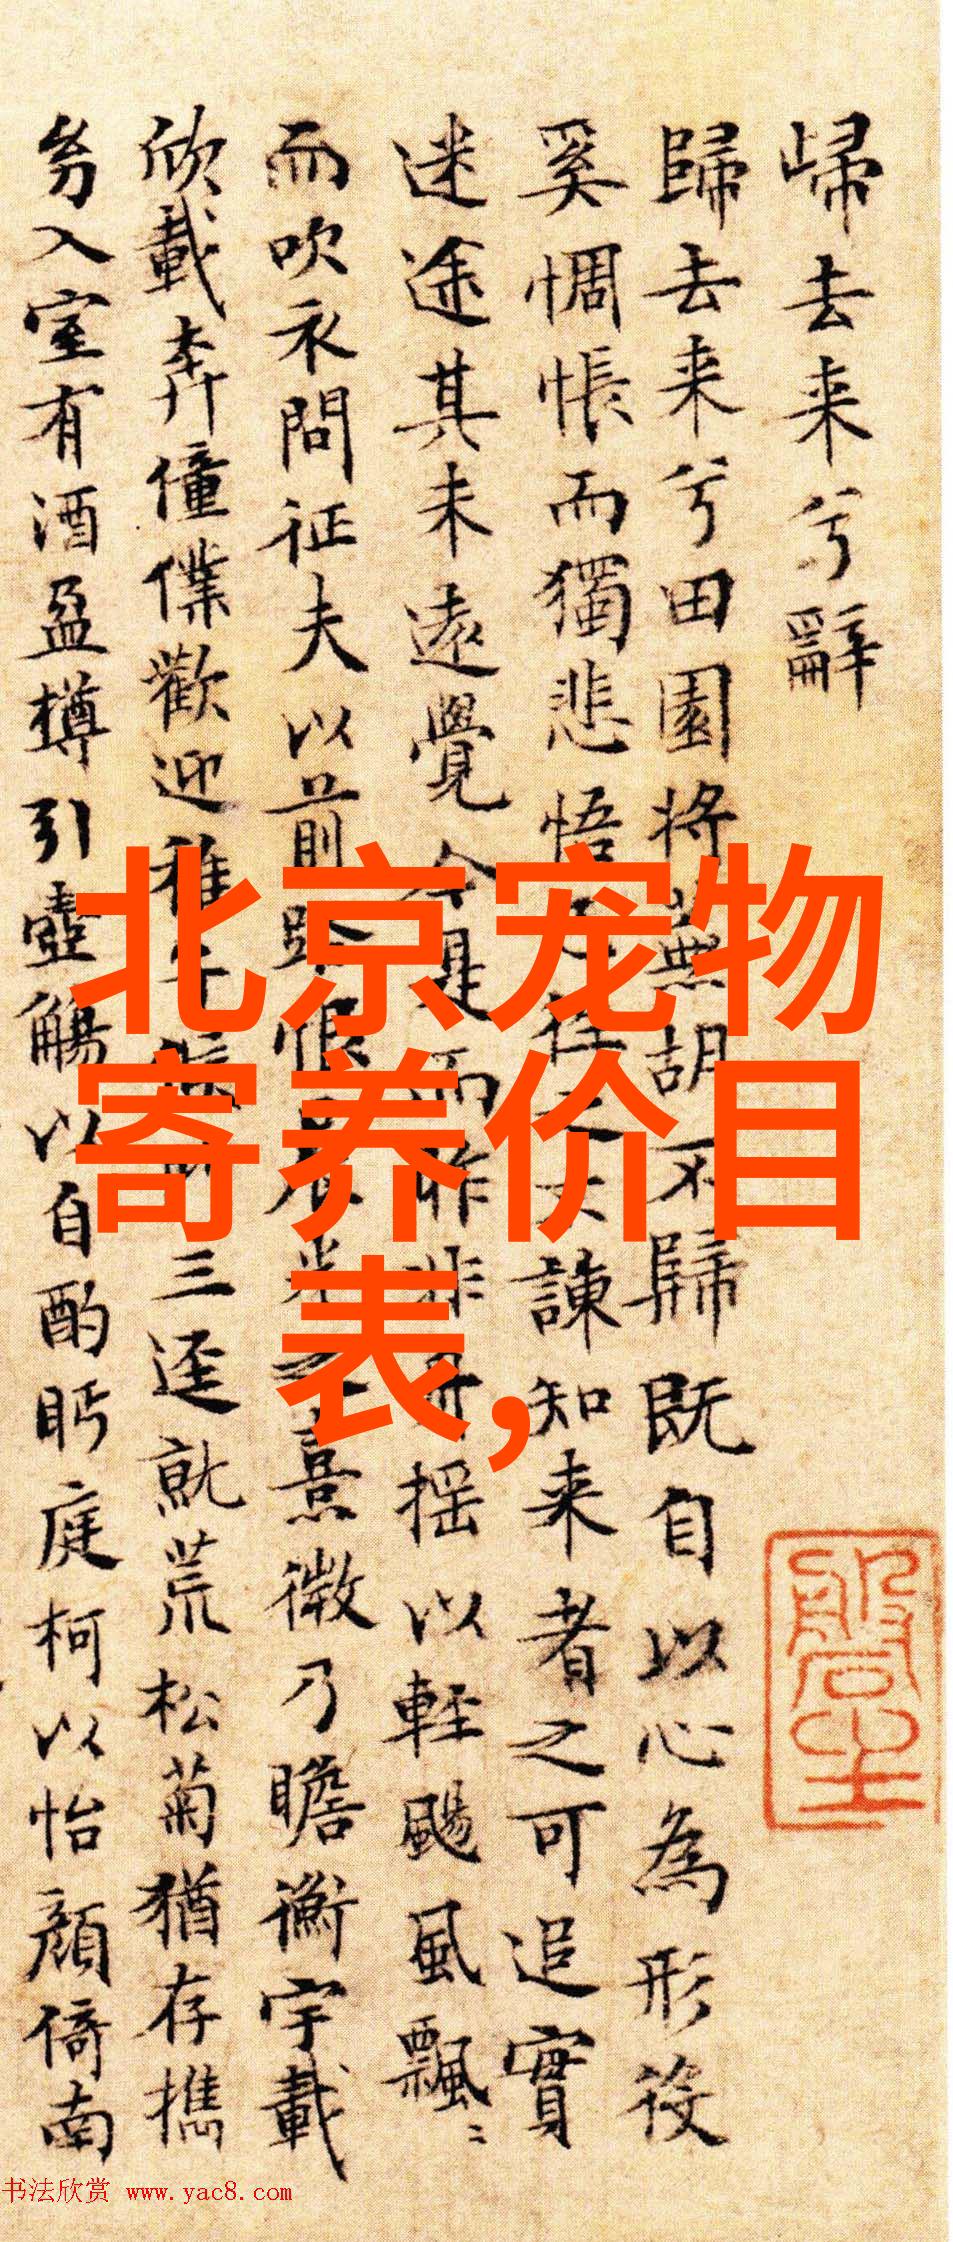 歸去来兮辭
歸去来兮田園将蕪胡不歸既自以心為形役
奚惆悵而獨悲悟已往之不諫知来者之可追實
迷途其未遠覺今是而昨非舟揺以輕颺風飄〻
而吹衣問征夫以前路恨晨光之熹微乃瞻衡宇載
欣載奔僮僕歡迎稚子候門三逕就荒松菊猶存携
幼入室有酒盈樽引壺觴以自酌眄庭柯以怡顔倚南
北京宠物
寄养价目
表,
书法欣赏 www.yac8.com